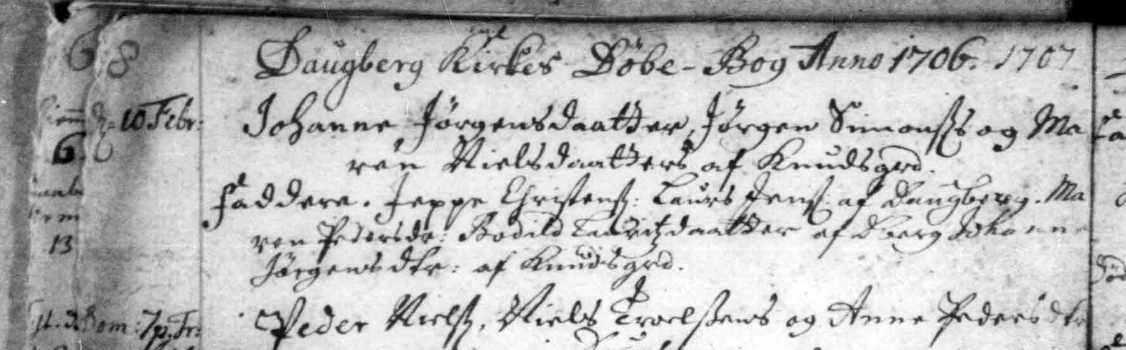 68
Daugberg Kirkes Döbe-Bog Anno 1706. 1707
10 Febr: Johanne Jörgensdaatter, Jörgen Simonss og Ma
ren Nielsdaatters af Knudsgrd.
Faddere. Jeppe Christens: Laurs Jens: af Daugberg. Ma
ren Pedersdr: Bodild Lauritzdaatter af Dberg Johanne
Jörgensdtr: af Knudsgrd.
Dom: 7 p. Tr: Peder Niels, Niels Troelsens og Anne Pedersdtr